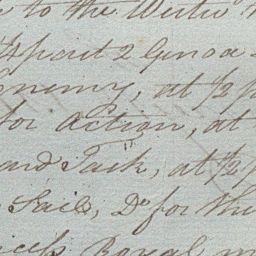 to the Westw
past 2 Genoa
Enemy, at ½ p
for Action, at
ard Tack, at ½ p
Sail, Do for the
Royal